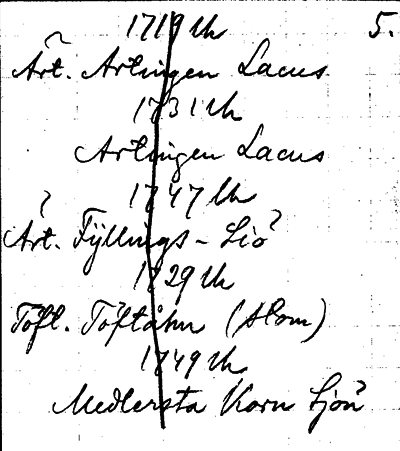 1719 Uh 5.
Art. Artingen Lacus
1731 Uh
Artingen Lacus
1747 Uh
Art. Fyllings-Siö?
1729 Uh
Töft. Töftåhn (Alom)
1749 Uh
Medlersta Korn Sjön